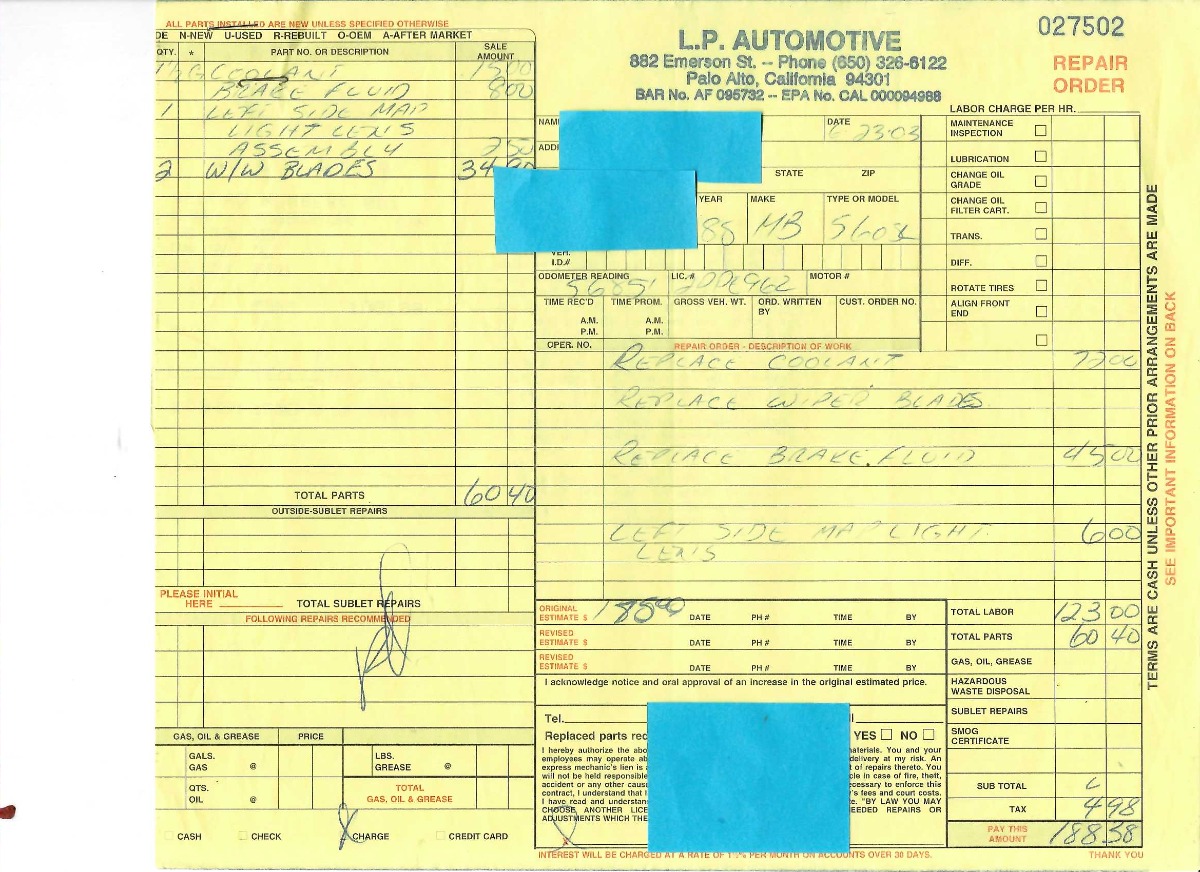 ALL PARTS INSTALLED ARE NEW UNLESS SPECIFIED OTHERWISE
DE N-NEW U-USED R-REBUILT O-OEM A-AFTER MARKET
QTY. * PART NO. OR DESCRIPTION SALE AMOUNT
COOLANT 1500
BRAKE FLUID 800
1 LEFT SIDE MAP
LIGHT LENS
ASSEMBLY 250
2 W/W BLADES 34 90
TOTAL PARTS 60 40
OUTSIDE-SUBLET REPAIRS
PLEASE INITIAL
HERE TOTAL SUBLET REPAIRS
FOLLOWING REPAIRS RECOMMENDED
GAS, OIL & GREASE PRICE
GALS.
GAS @
LBS.
GREASE @
QTS.
OIL @
TOTAL
GAS, OIL & GREASE
CASH CHECK X CHARGE CREDIT CARD
L.P. AUTOMOTIVE
882 Emerson St. -- Phone (650) 326-6122
Palo Alto, California 94301
BAR No. AF 095732 -- EPA No. CAL 000094988
027502
REPAIR
ORDER
LABOR CHARGE PER HR.
DATE 6-23-03
STATE ZIP
YEAR MAKE TYPE OR MODEL
88 MB 560SL
VEH.
I.D.#
ODOMETER READING LIC.# MOTOR #
56851
TIME REC'D TIME PROM. GROSS VEH. WT. ORD. WRITTEN BY CUST. ORDER NO.
A.M. A.M.
P.M. P.M.
MAINTENANCE
INSPECTION
LUBRICATION
CHANGE OIL
GRADE
CHANGE OIL
FILTER CART.
TRANS.
DIFF.
ROTATE TIRES
ALIGN FRONT
END
OPER. NO. REPAIR ORDER - DESCRIPTION OF WORK
REPLACE COOLANT 7200
REPLACE WIPER BLADES
REPLACE BRAKE FLUID 4500
LEFT SIDE MAP LIGHT 600
LENS
ORIGINAL
ESTIMATE $ 18500 DATE PH # TIME BY
REVISED
ESTIMATE $ DATE PH # TIME BY
REVISED
ESTIMATE $ DATE PH # TIME BY
I acknowledge notice and oral approval of an increase in the original estimated price.
Tel.
Replaced parts YES NO
I hereby authorize the materials. You and your
employees may operate delivery at my risk. An
express mechanic's lien is of repairs thereto. You
will not be held responsible in case of fire, theft,
accident or any other necessary to enforce this
contract, I understand that fees and court costs.
I have read and "BY LAW YOU MAY
CHOOSE ANOTHER REPAIRS OR
ADJUSTMENTS WHICH
X
INTEREST WILL BE CHARGED AT A RATE OF 1½% PER MONTH ON ACCOUNTS OVER 30 DAYS.
TOTAL LABOR 123 00
TOTAL PARTS 60 40
GAS, OIL, GREASE
HAZARDOUS
WASTE DISPOSAL
SUBLET REPAIRS
SMOG
CERTIFICATE
SUB TOTAL
TAX 4 98
PAY THIS
AMOUNT 188 38
THANK YOU
TERMS ARE CASH UNLESS OTHER PRIOR ARRANGEMENTS ARE MADE
SEE IMPORTANT INFORMATION ON BACK